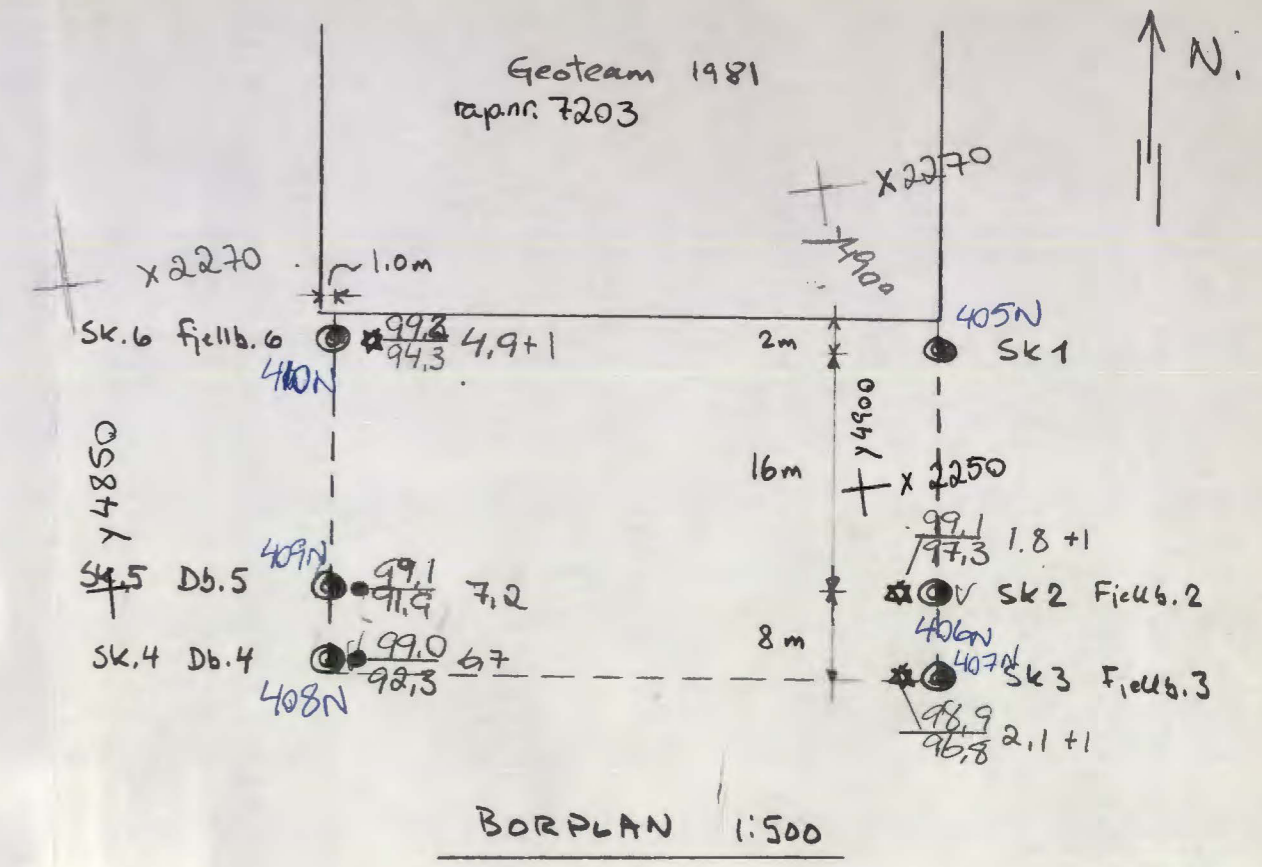 Geoteam 1981
N.
rap.nr. 7203
x 2270
y 4900
x 2270
1.0m
405N
Sk.6 Fjellb.6
99,2
94,3
4,9+1
2m
Sk 1
410N
y 4850
y 4900
16m
x 2250
99,1
97,3
1.8 +1
409N
Sk.5 Db.5
99,1
91,9
7,2
V Sk2 Fjellb.2
406N
8m
Sk.4 Db.4
99.0
92,3
6,7
407N
Sk3 Fjellb.3
408N
98,9
96,8
2,1 +1
BORPLAN 1:500